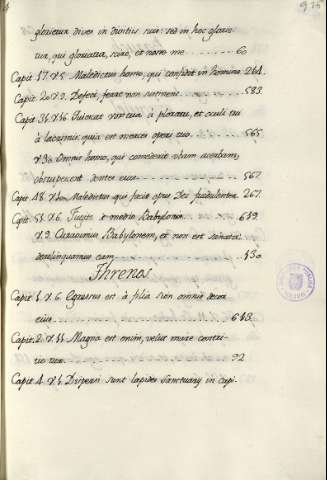 glorietur dives in divitiis suis: sed in hoc glorie
tur, qui gloriatur, scire, et nosse me ........ 60
Capit. 17. v. 5. Maledictus homo, qui confidit in homine. 264.
Capit. 20. v. 9. Defeci, ferre non sustinens ........ 583.
Capit. 31. v. 16. Quiescat vox tua à ploratu, et oculi tui
à lacrimis: quia est merces operi tuo ........ 565
v. 30. Omnis homo, qui comederit uvam acerbam,
obstupescent dentes eius ........ 567.
Capit. 48. v. 10. Maledictus qui facit opus Dei fraudulenter. 267.
Capit. 51. v. 6. Fugite de medio Babylonis ........ 619.
v. 9. Curavimus Babylonem, et non est sanata:
derelinquamus eam ........ 130.
Threnos
Capit. 1. v. 6. Egressus est à filia Sion omnis decor
eius ........ 613.
Capit. 2. v. 11. Magna est enim, velut mare contri-
tio tua ........ 92
Capit. 4. v. 1. Dispersi sunt lapides Sanctuarij in capi-